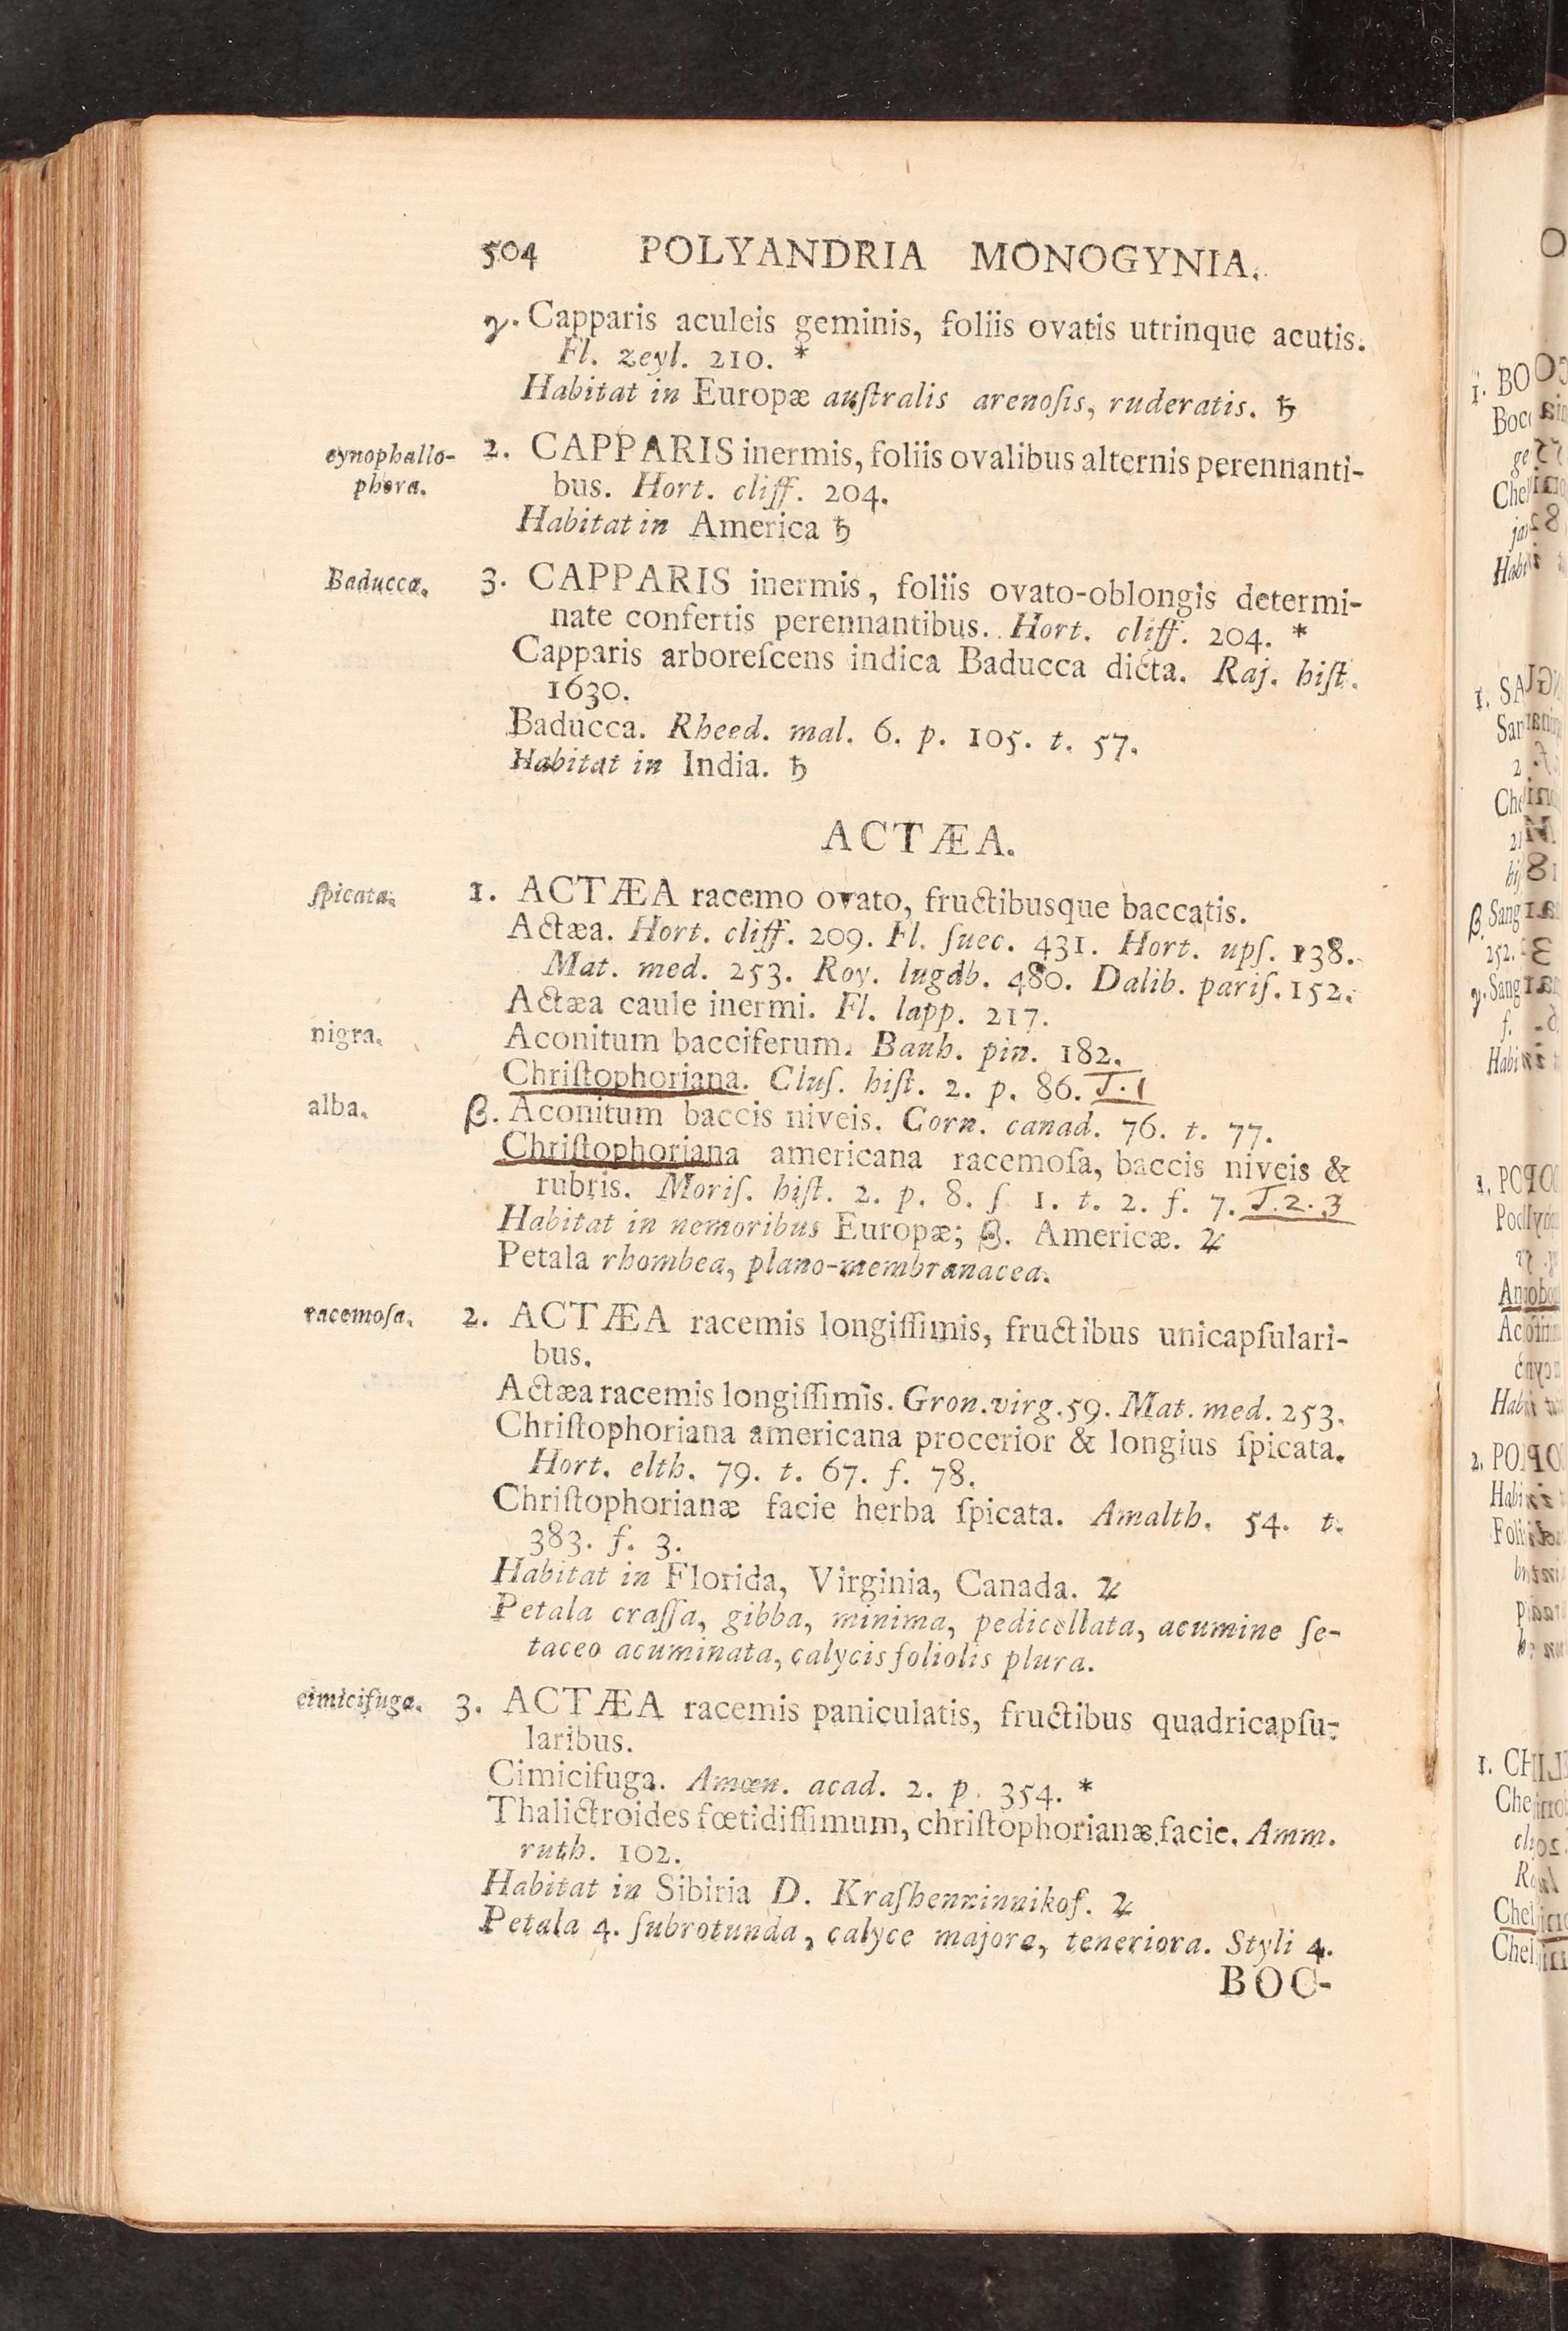 504 POLYANDRIA MONOGYNIA.
γ. Capparis aculeis geminis, foliis ovatis utrinque acutis.
Fl. zeyl. 210. *
Habitat in Europæ auſtralis arenoſis, ruderatis. ♄
cynophallo- 2. CAPPARIS inermis, foliis ovalibus alternis perennanti-
phora. bus. Hort. cliff. 204.
Habitat in America ♄
Baducca. 3. CAPPARIS inermis, foliis ovato-oblongis determi-
nate confertis perennantibus. Hort. cliff. 204. *
Capparis arboreſcens indica Baducca dicta. Raj. hiſt.
1630.
Baducca. Rheed. mal. 6. p. 105. t. 57.
Habitat in India. ♄
ACTÆA.
ſpicata. 1. ACTÆA racemo ovato, fructibusque baccatis.
Actæa. Hort. cliff. 209. Fl. ſuec. 431. Hort. upſ. 138.
Mat. med. 253. Roy. lugdb. 480. Dalib. pariſ. 152.
Actæa caule inermi. Fl. lapp. 217.
nigra. Aconitum bacciferum. Bauh. pin. 182.
Chriſtophoriana. Cluſ. hiſt. 2. p. 86. T. 1
alba. β. Aconitum baccis niveis. Corn. canad. 76. t. 77.
Chriſtophoriana americana racemoſa, baccis niveis &
rubris. Moriſ. hiſt. 2. p. 8. ſ 1. t. 2. f. 7. T. 2. 3
Habitat in nemoribus Europæ; β. Americæ. ♃
Petala rhombea, plano-membranacea.
racemoſa. 2. ACTÆA racemis longiſſimis, fructibus unicapſulari-
bus.
Actæa racemis longiſſimis. Gron. virg. 59. Mat. med. 253.
Chriſtophoriana americana procerior & longius ſpicata.
Hort. elth. 79. t. 67. f. 78.
Chriſtophorianæ facie herba ſpicata. Amalth. 54. t.
383. f. 3.
Habitat in Florida, Virginia, Canada. ♃
Petala craſſa, gibba, minima, pedicellata, acumine ſe-
taceo acuminata, calycis foliolis plura.
cimicifuga. 3. ACTÆA racemis paniculatis, fructibus quadricapſu-
laribus.
Cimicifuga. Amœn. acad. 2. p. 354. *
Thalictroides fœtidiſſimum, chriſtophorianæ facie. Amm.
ruth. 102.
Habitat in Sibiria D. Kraſhenninnikof. ♃
Petala 4. ſubrotunda, calyce majora, teneriora. Styli 4.
BOC-